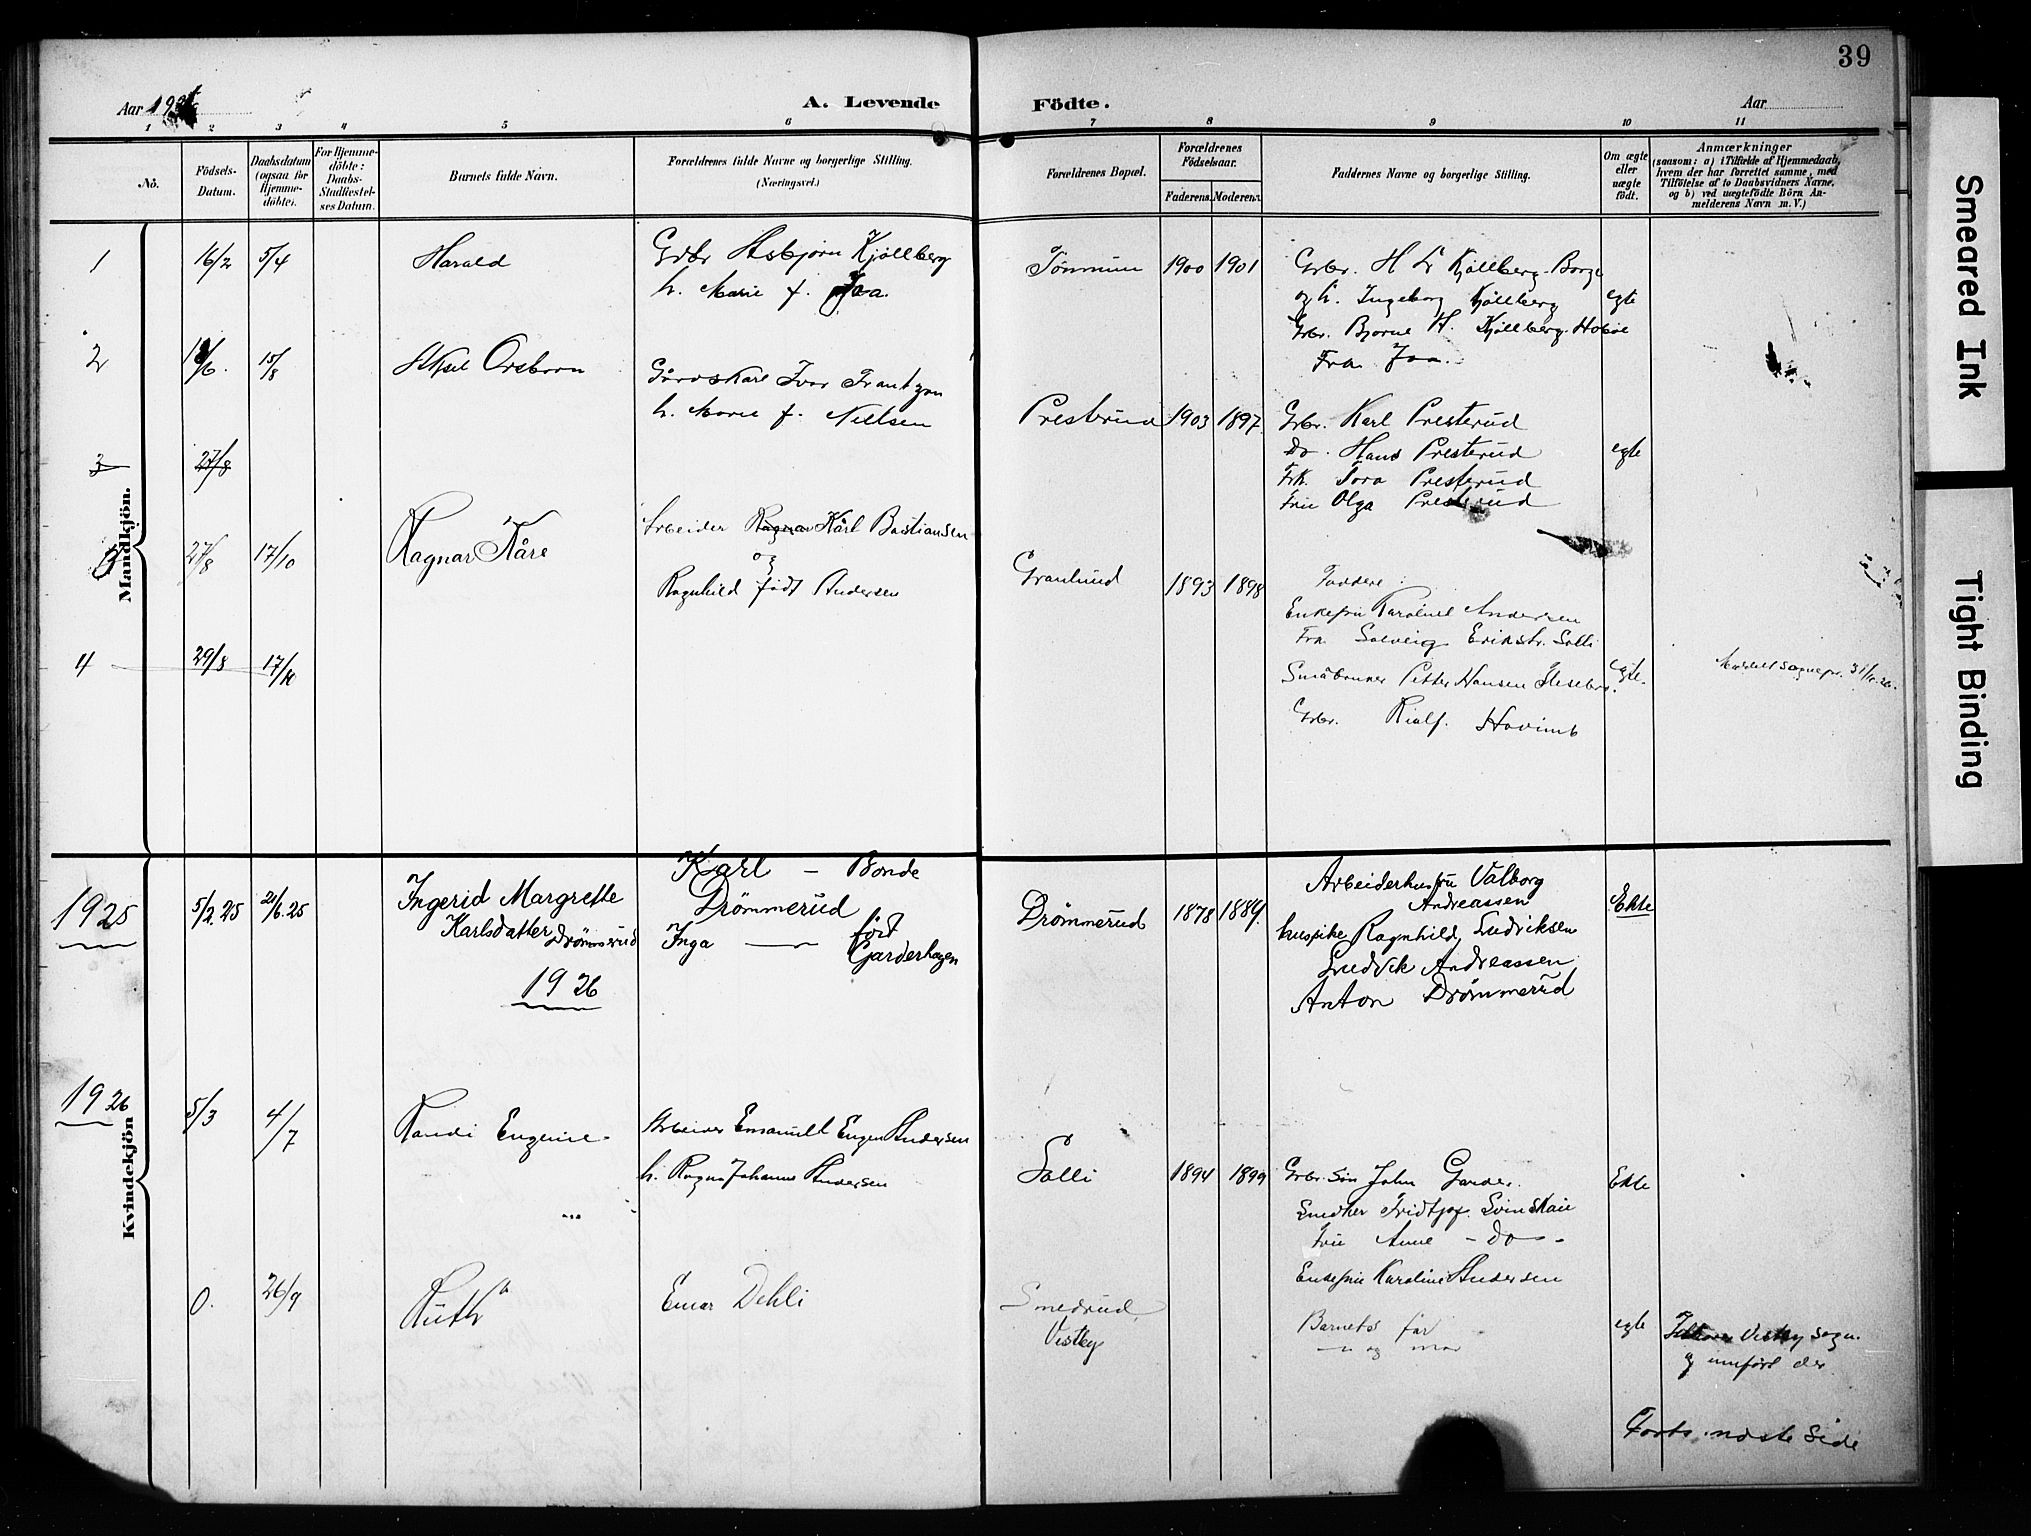 39
Aar 192
A. Levende Födte.
Aar
1 2 3 4 5 6 7 8 9 10 11
No.
Födsels-Datum.
Daabsdatum (ogsaa for Hjemme-döbte).
For Hjemme-döbte: Daabs-Stadfæstel-ses Datum.
Barnets fulde Navn.
Forældrenes fulde Navne og borgerlige Stilling.
(Næringsvei.)
Forældrenes Bopæl.
Forældrenes Födselsaar.
Faderens. Moderens.
Faddernes Navne og borgerlige Stilling.
Om ægte eller uægte födt.
Anmærkninger
(saasom: a) i Tilfælde af Hjemmedaab,
hvem der har forrettet samme, med
Tilföielse af to Daabsvidners Navne,
og b) ved uægtefödte Börn An-
melderens Navn m. V.)
Mandkjön.
1 16/2 5/4 Harald
Gbr Asbjørn Kjøllberg
h. Marie f. Joa.
1900 1901
Gbr. H Kjøllberg
og h. Ingeborg Kjøllberg egte
Gbr. Bjarne H. Kjøllberg. Hobøl
2 /6. 15/8 Aksel Orsborn
Gårdskarl Ivar Frantzen
h. Marie f. Nielsen
Presterud 1903 1897
Gbr. Karl Presterud
Do. Hans Presterud egte
Frk. Tora Presterud
Fru Olga Presterud
3 27/8
27/8 17/10 Ragnar Kåre
Arbeider Ragnar Karl Bastiansen
og
Ragnhild født Andersen
Granlund 1893 1898
Faddere:
Enkefru Karoline Andersen
Solveig Solli
Småbruker Petter Hansen egte.
Gbr.
4 29/8 17/10
Kvindekjön
1925 5/2.25 21/6.25
Ingerid Margrethe
Karlsdatter Drømmerud
Karl – Bonde
Drømmerud
Inga — født
Garderhagen
Drømmerud 1878 1889. Ekte
Arbeiderhustru Valborg
Andreassen
huspike Ragnhild Ludviksen
Ludvik Andreassen
Anton Drømmerud
1926
1926 5/3 4/7 Randi Eugenie
Arbeider Emanuel Eugen Andersen
h. Ragna Johanne Andersen
Solli 1894 1899 Ekte
Gbr. søn John Garder.
Snedker Fridtjof
Fru Anne – do –
Enkefru Karoline Andersen
0. 26/9 Ruth
Einar Dehli
Smedrud
Vestby
Barnets far
– " og mor
egte
Vestby sogn
og innført der
Forts. næste side
Smeared Ink
Tight Binding